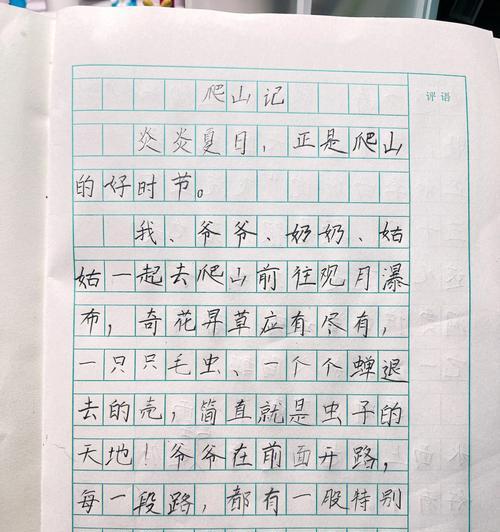 爬山记
评语
炎炎夏日，正是爬山
的好时节。
我、爷爷、奶奶、姑
姑一起去爬山前往观月瀑
布，奇花异草应有尽有，
一只只毛虫、一个个蝉退
去的壳，简直就是虫子的
天地！爷爷在前面开路，
每一段路，都有一股特别